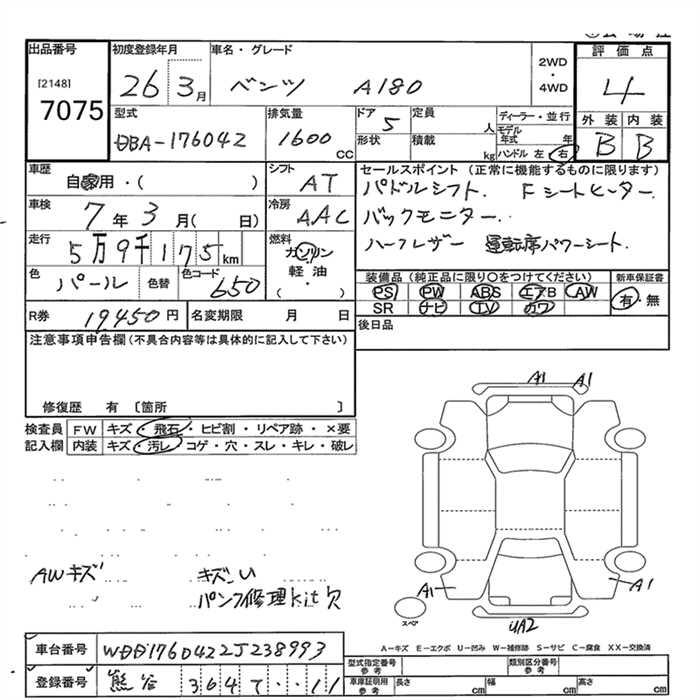 出品番号 初度登録年月 車名・グレード 評価点
[2148]
7075
26 3月 ベンツ A180
2WD
・
4WD
4
型式 排気量 ドア 定員 ディーラー・並行 外装 内装
DBA-176042 1600CC 5 人 モデル年式 年 B B
形状 積載 kg ハンドル 左 右
車歴 シフト セールスポイント (正常に機能するものに限ります)
自家用・( ) AT パドルシフト. Fシートヒーター.
車検 冷房
7年3月( 日) AAC バックモニター.
走行 燃料
5万9千175km ガソリン ハーフレザー 運転席パワーシート.
軽・油
・( )
色 色替 色コード 装備品(純正品に限り○をつけてください) 新車保証書
パール 650 PS PW ABS エアB AW 有・無
SR ナビ TV カワ
R券 19450円 名変期限 月 日 後日品
注意事項申告欄(不具合内容等は具体的に記入して下さい)
修復歴 有 〔箇所 〕
検査員 FW キズ・飛石・ヒビ割・リペア跡・×要
記入欄 内装 キズ・汚レ・コゲ・穴・スレ・キレ・破レ
A1 A1
AWキズ キズ
パンク修理kit欠
A1 A1
スペア UA2
A-キズ E-エクボ U-凹み W-補修跡 S-サビ C-腐食 XX-交換済
車台番号 WDD1760422J238993
型式指定番号 参考 類別区分番号 参考
登録番号 熊谷 364 11
車庫証明用 参考 長さ cm 幅 cm 高さ cm